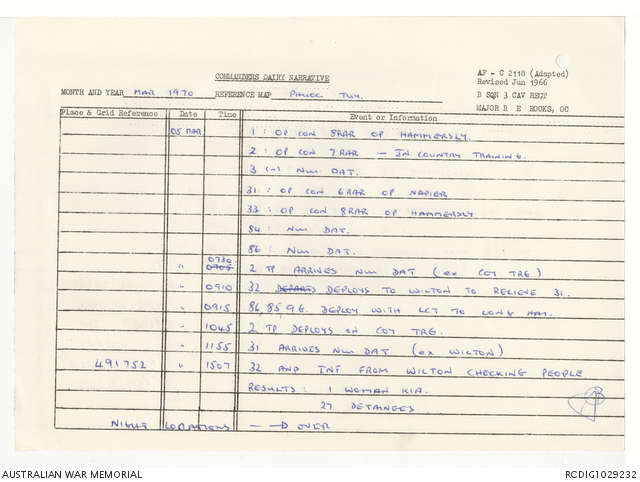 COMMANDERS DAIRY NARRATIVE
AF - C 2118 (Adapted)
Revised Jun 1966
MONTH AND YEAR MAR 1970 REFERENCE MAP PHUOC TUY.
B SQN 3 CAV REGT
MAJOR R E ROOKS, OC
Place & Grid Reference Date Time Event or Information
05 MAR 1: OP CON 8RAR OP HAMMERSLY.
2: OP CON 7RAR - IN COUNTRY TRAINING.
3 (-) NUI DAT.
31: OP CON 6RAR OP NAPIER
33: OP CON 8RAR OP HAMMERSLY
84: NUI DAT.
86: NUI DAT.
" 0730 0905 2 TP ARRIVES NUI DAT (ex COY TRG)
" 0910 32 DEPARTS DEPLOYS TO WILTON TO RELIEVE 31.
" 0915 84, 85, 96. DEPLOY WITH LCT TO LONG HAI.
" 1045 2 TP DEPLOYS ON COY TRG.
" 1155 31 ARRIVES NUI DAT (ex WILTON)
491752 " 1507 32 AND INF FROM WILTON CHECKING PEOPLE
RESULTS: 1 WOMAN KIA.
27 DETAINEES
NIGHT LOCATIONS OVER
AUSTRALIAN WAR MEMORIAL RCDIG1029232